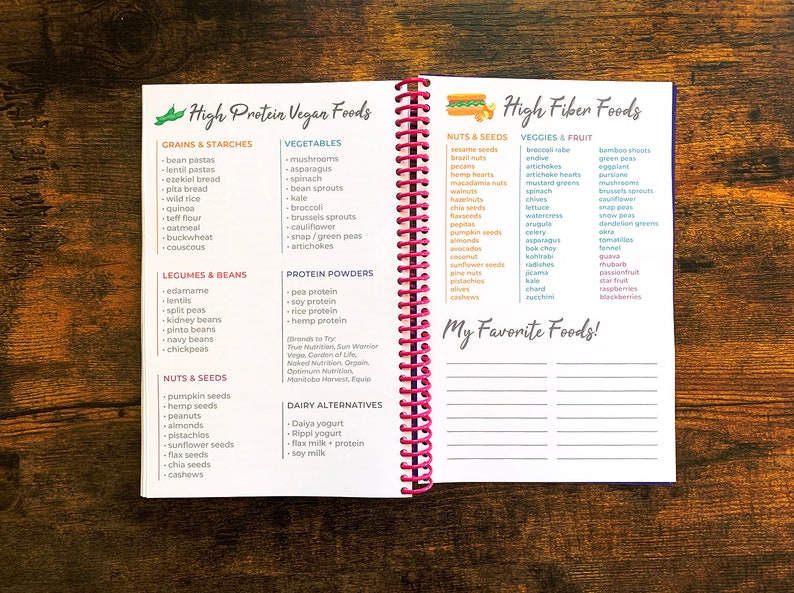 High Protein Vegan Foods
GRAINS & STARCHES
• bean pastas
• lentil pastas
• ezekiel bread
• pita bread
• wild rice
• quinoa
• teff flour
• oatmeal
• buckwheat
• couscous
LEGUMES & BEANS
• edamame
• lentils
• split peas
• kidney beans
• pinto beans
• navy beans
• chickpeas
NUTS & SEEDS
• pumpkin seeds
• hemp seeds
• peanuts
• almonds
• pistachios
• sunflower seeds
• flax seeds
• chia seeds
• cashews
VEGETABLES
• mushrooms
• asparagus
• spinach
• bean sprouts
• kale
• broccoli
• brussels sprouts
• cauliflower
• snap / green peas
• artichokes
PROTEIN POWDERS
• pea protein
• soy protein
• rice protein
• hemp protein
(Brands to Try:
True Nutrition, Sun Warrior
Vega, Garden of Life,
Naked Nutrition, Orgain,
Optimum Nutrition,
Manitoba Harvest, Equip
DAIRY ALTERNATIVES
• Daiya yogurt
• Rippl yogurt
• flax milk + protein
• soy milk
High Fiber Foods
NUTS & SEEDS
sesame seeds
brazil nuts
pecans
hemp hearts
macadamia nuts
walnuts
hazelnuts
chia seeds
flaxseeds
pepitas
pumpkin seeds
almonds
avocados
coconut
sunflower seeds
pine nuts
pistachios
olives
cashews
VEGGIES & FRUIT
broccoli rabe
endive
artichokes
artichoke hearts
mustard greens
spinach
chives
lettuce
watercress
arugula
celery
asparagus
bok choy
kohlrabi
radishes
jicama
kale
chard
zucchini
bamboo shoots
green peas
eggplant
purslane
mushrooms
brussels sprouts
cauliflower
snap peas
snow peas
dandelion greens
okra
tomatillos
fennel
guava
rhubarb
passionfruit
star fruit
raspberries
blackberries
My Favorite Foods!